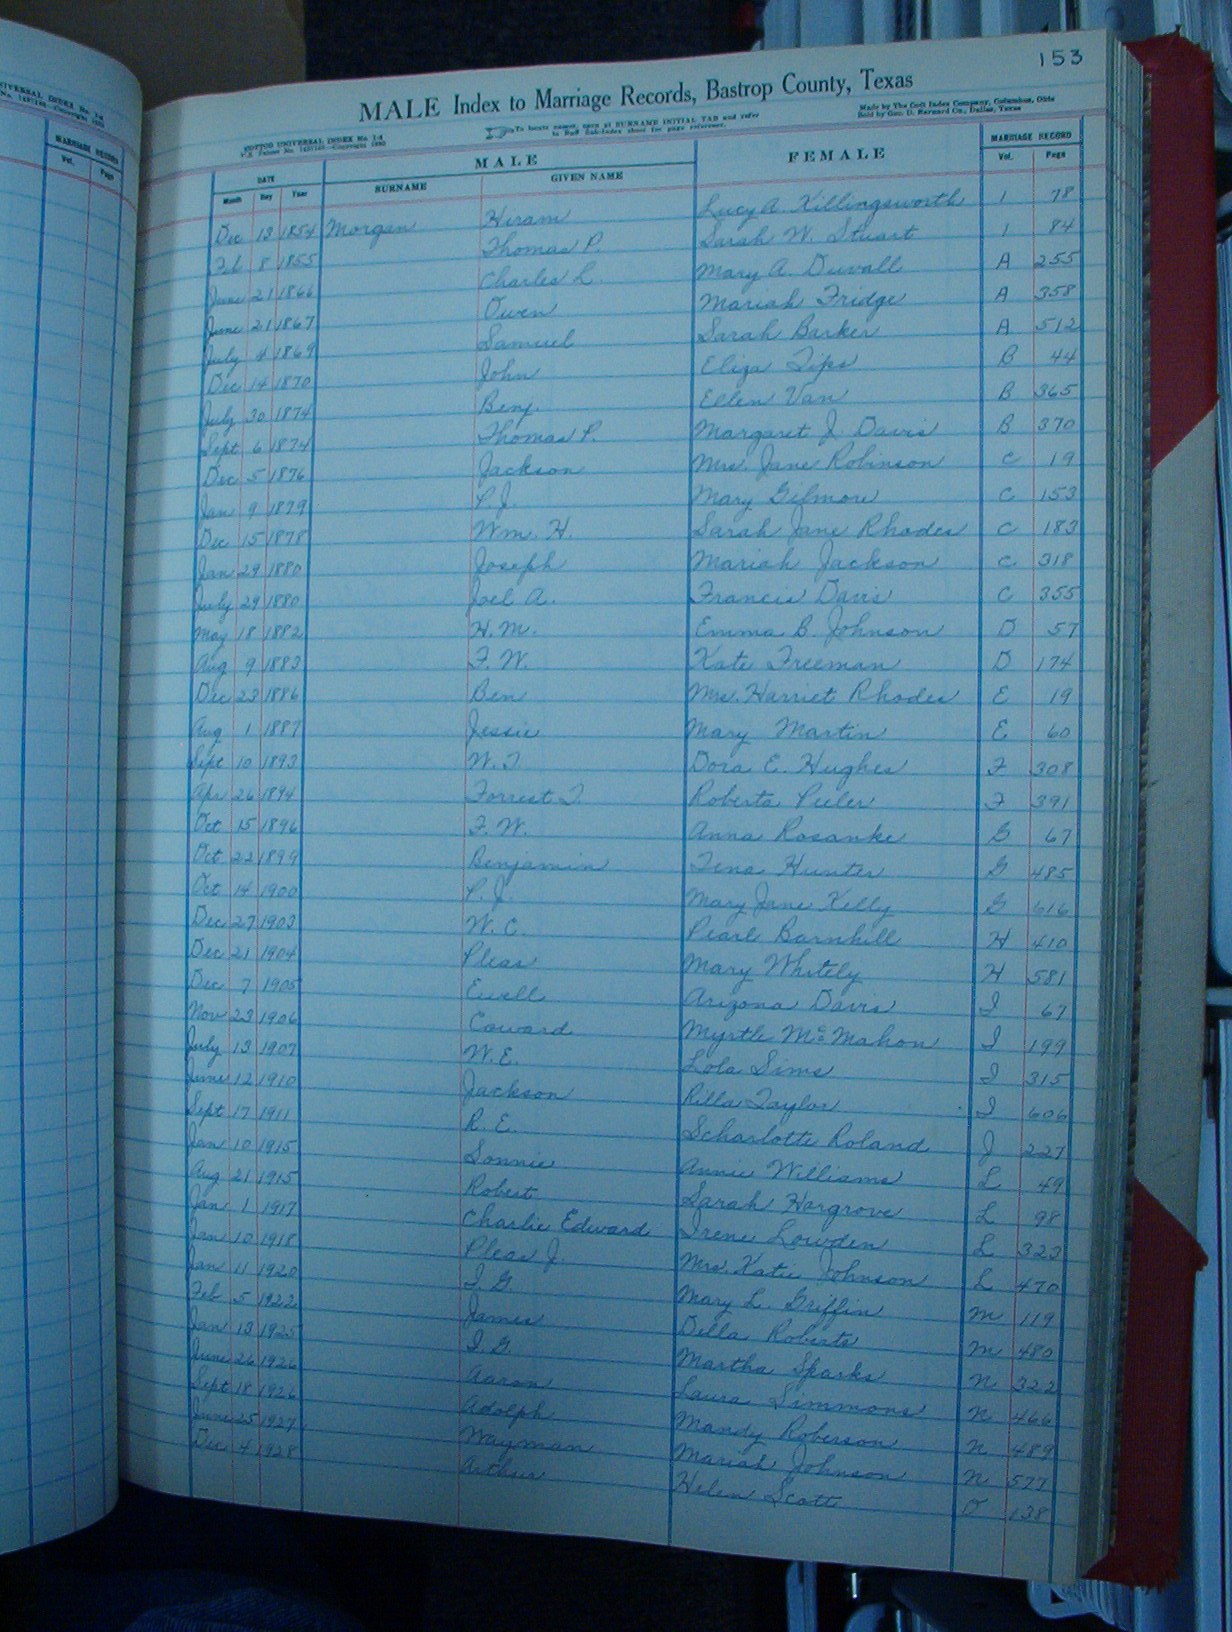 153
MALE Index to Marriage Records, Bastrop County, Texas
COTTCO UNIVERSAL INDEX No. 1-A
To locate names, open at SURNAME INITIAL TAB and refer to Buff Sub-Index sheet for page reference.
Made by The Cott Index Company, Columbus, Ohio
Sold by Geo. D. Barnard Co., Dallas, Texas
DATE MALE FEMALE MARRIAGE RECORD
Month Day Year SURNAME GIVEN NAME Vol. Page
Dec 13 1854 Morgan Hiram Lucy A. Killingsworth 1 78
Feb 8 1855 Thomas P. Sarah W. Stuart 1 84
June 21 1866 Charles L. Mary A. Duvall A 255
June 21 1867 Owen Mariah Fridge A 358
July 4 1869 Samuel Sarah Barker A 512
Dec 14 1870 John Eliza Tips B 44
July 30 1874 Benj. Ellen Van B 365
Sept 6 1874 Thomas P. Margaret J. Davis B 370
Dec 5 1876 Jackson Mrs. Jane Robinson C 19
Jan 9 1879 P. J. Mary Gilmore C 153
Dec 15 1878 Wm. H. Sarah Jane Rhodes C 183
Jan 29 1880 Joseph Mariah Jackson C 318
July 29 1880 Joel A. Francis Davis C 355
May 18 1882 H. M. Emma B. Johnson D 57
Aug 9 1883 F. W. Kate Freeman D 174
Dec 23 1886 Ben Mrs. Harriet Rhodes E 19
Aug 1 1887 Jessie Mary Martin E 60
Sept 10 1893 W. T. Dora E. Hughes F 308
Apr 26 1894 Forrest T. Roberta Peeler F 391
Oct 15 1896 F. W. Anna Rosanke G 67
Oct 22 1899 Benjamin Tena Hunter G 485
Oct 14 1900 P. J. Mary Jane Kelly G 616
Dec 27 1903 W. C. Pearl Barnhill H 410
Dec 21 1904 Pleas Mary Whitely H 581
Dec 7 1905 Ewell Arizona Davis I 67
Nov 23 1906 Coward Myrtle McMahon I 199
July 13 1907 W. E. Lola Sims I 315
June 12 1910 Jackson Rilla Taylor I 606
Sept 17 1911 R. E. Scharlotte Roland J 227
Jan 10 1915 Sonnie Annie Williams L 49
Aug 21 1915 Robert Sarah Hargrove L 98
Jan 1 1917 Charlie Edward Irene Lowden L 323
Jan 10 1918 Pleas J. Mrs. Katie Johnson L 470
Jan 11 1920 I. G. Mary L. Griffin M 119
Feb 5 1922 James Della Roberts M 480
Jan 13 1925 I. G. Martha Sparks N 322
June 26 1926 Aaron Laura Simmons N 466
Sept 18 1926 Adolph Mandy Roberson N 489
June 25 1927 Wayman Mariah Johnson N 577
Dec 4 1928 Arthur Helen Scott O 138
MARRIAGE RECORD
Vol. Page